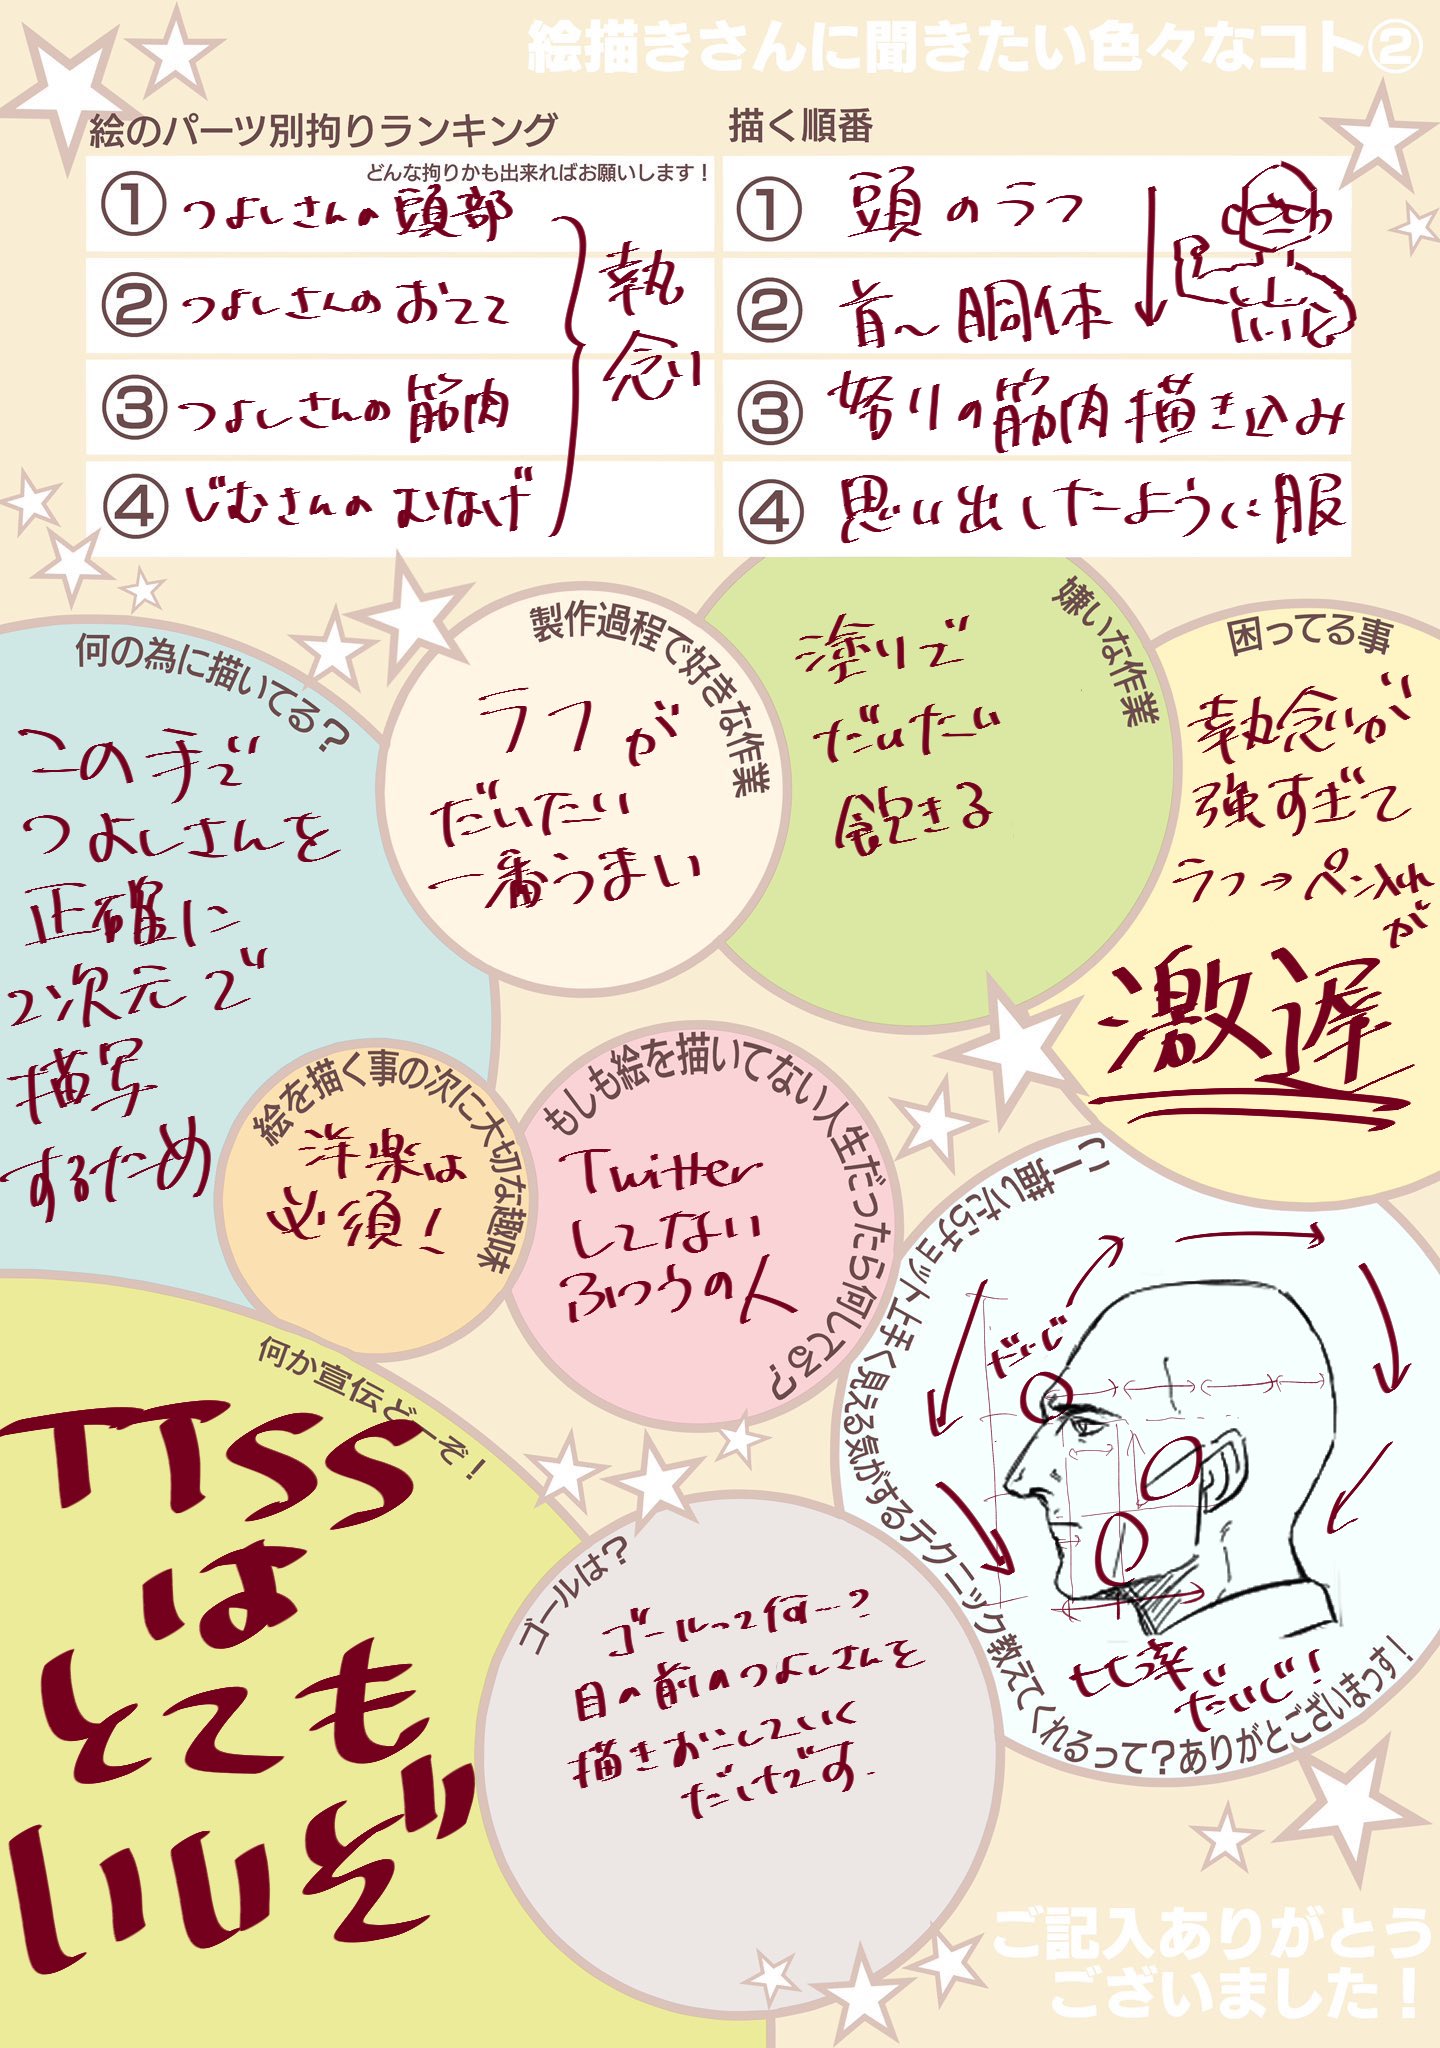 絵描きさんに聞きたい色々なコト②
絵のパーツ別拘りランキング
どんな拘りかも出来ればお願いします！
①つよしさんの頭部
②つよしさんのおてて
③つよしさんの筋肉
④じむさんのむなげ
執
念い
描く順番
①頭のラフ
②首～胴体
③努りの筋肉描き込み
④思い出したように服
何の為に描いてる？
この手で
つよしさんを
正確に
2次元で
描写
するため
製作過程で好きな作業
ラフが
だいたい
一番うまい
嫌いな作業
塗りで
だいたい
飽きる
困ってる事
執念いが
強すぎて
ラフ→ペン入れ
が
激遅
絵を描く事の次に大切な趣味
洋楽は
必須！
もしも絵を描いてない人生だったら何してる？
Twitter
してない
ふつうの人
こー描いたらチョット上手く見える気がするテクニック教えてくれるって？ありがとございまっす！
だいじ
比率
だいじ！
何か宣伝どーぞ！
TTSS
は
とても
いいぞ
ゴールは？
ゴールって何…？
目の前のつよしさんを
描きおこしていく
だけです.
ご記入ありがとう
ございました！